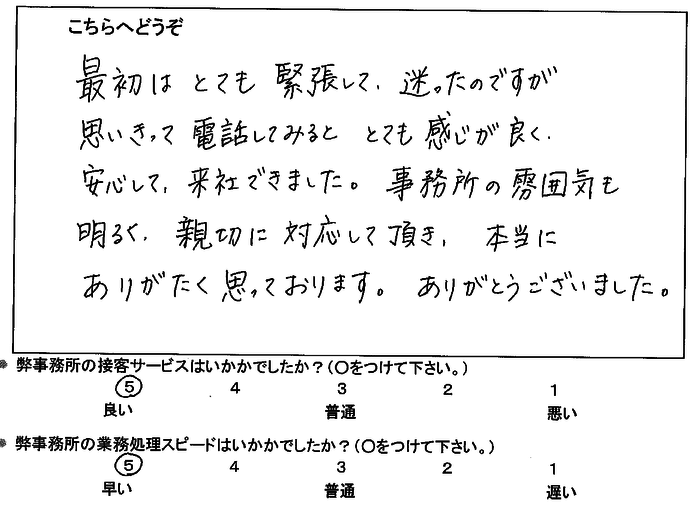 こちらへどうぞ
最初は とても 緊張して、迷ったのですが
思いきって 電話してみると とても 感じが 良く、
安心して、来社できました。 事務所の 雰囲気も
明るく、親切に 対応して 頂き、 本当に
ありがたく 思っております。 ありがとうございました。
* 弊事務所の接客サービスはいかかでしたか？（○をつけて下さい。）
⑤ 4 3 2 1
良い 普通 悪い
* 弊事務所の業務処理スピードはいかかでしたか？（○をつけて下さい。）
⑤ 4 3 2 1
早い 普通 遅い